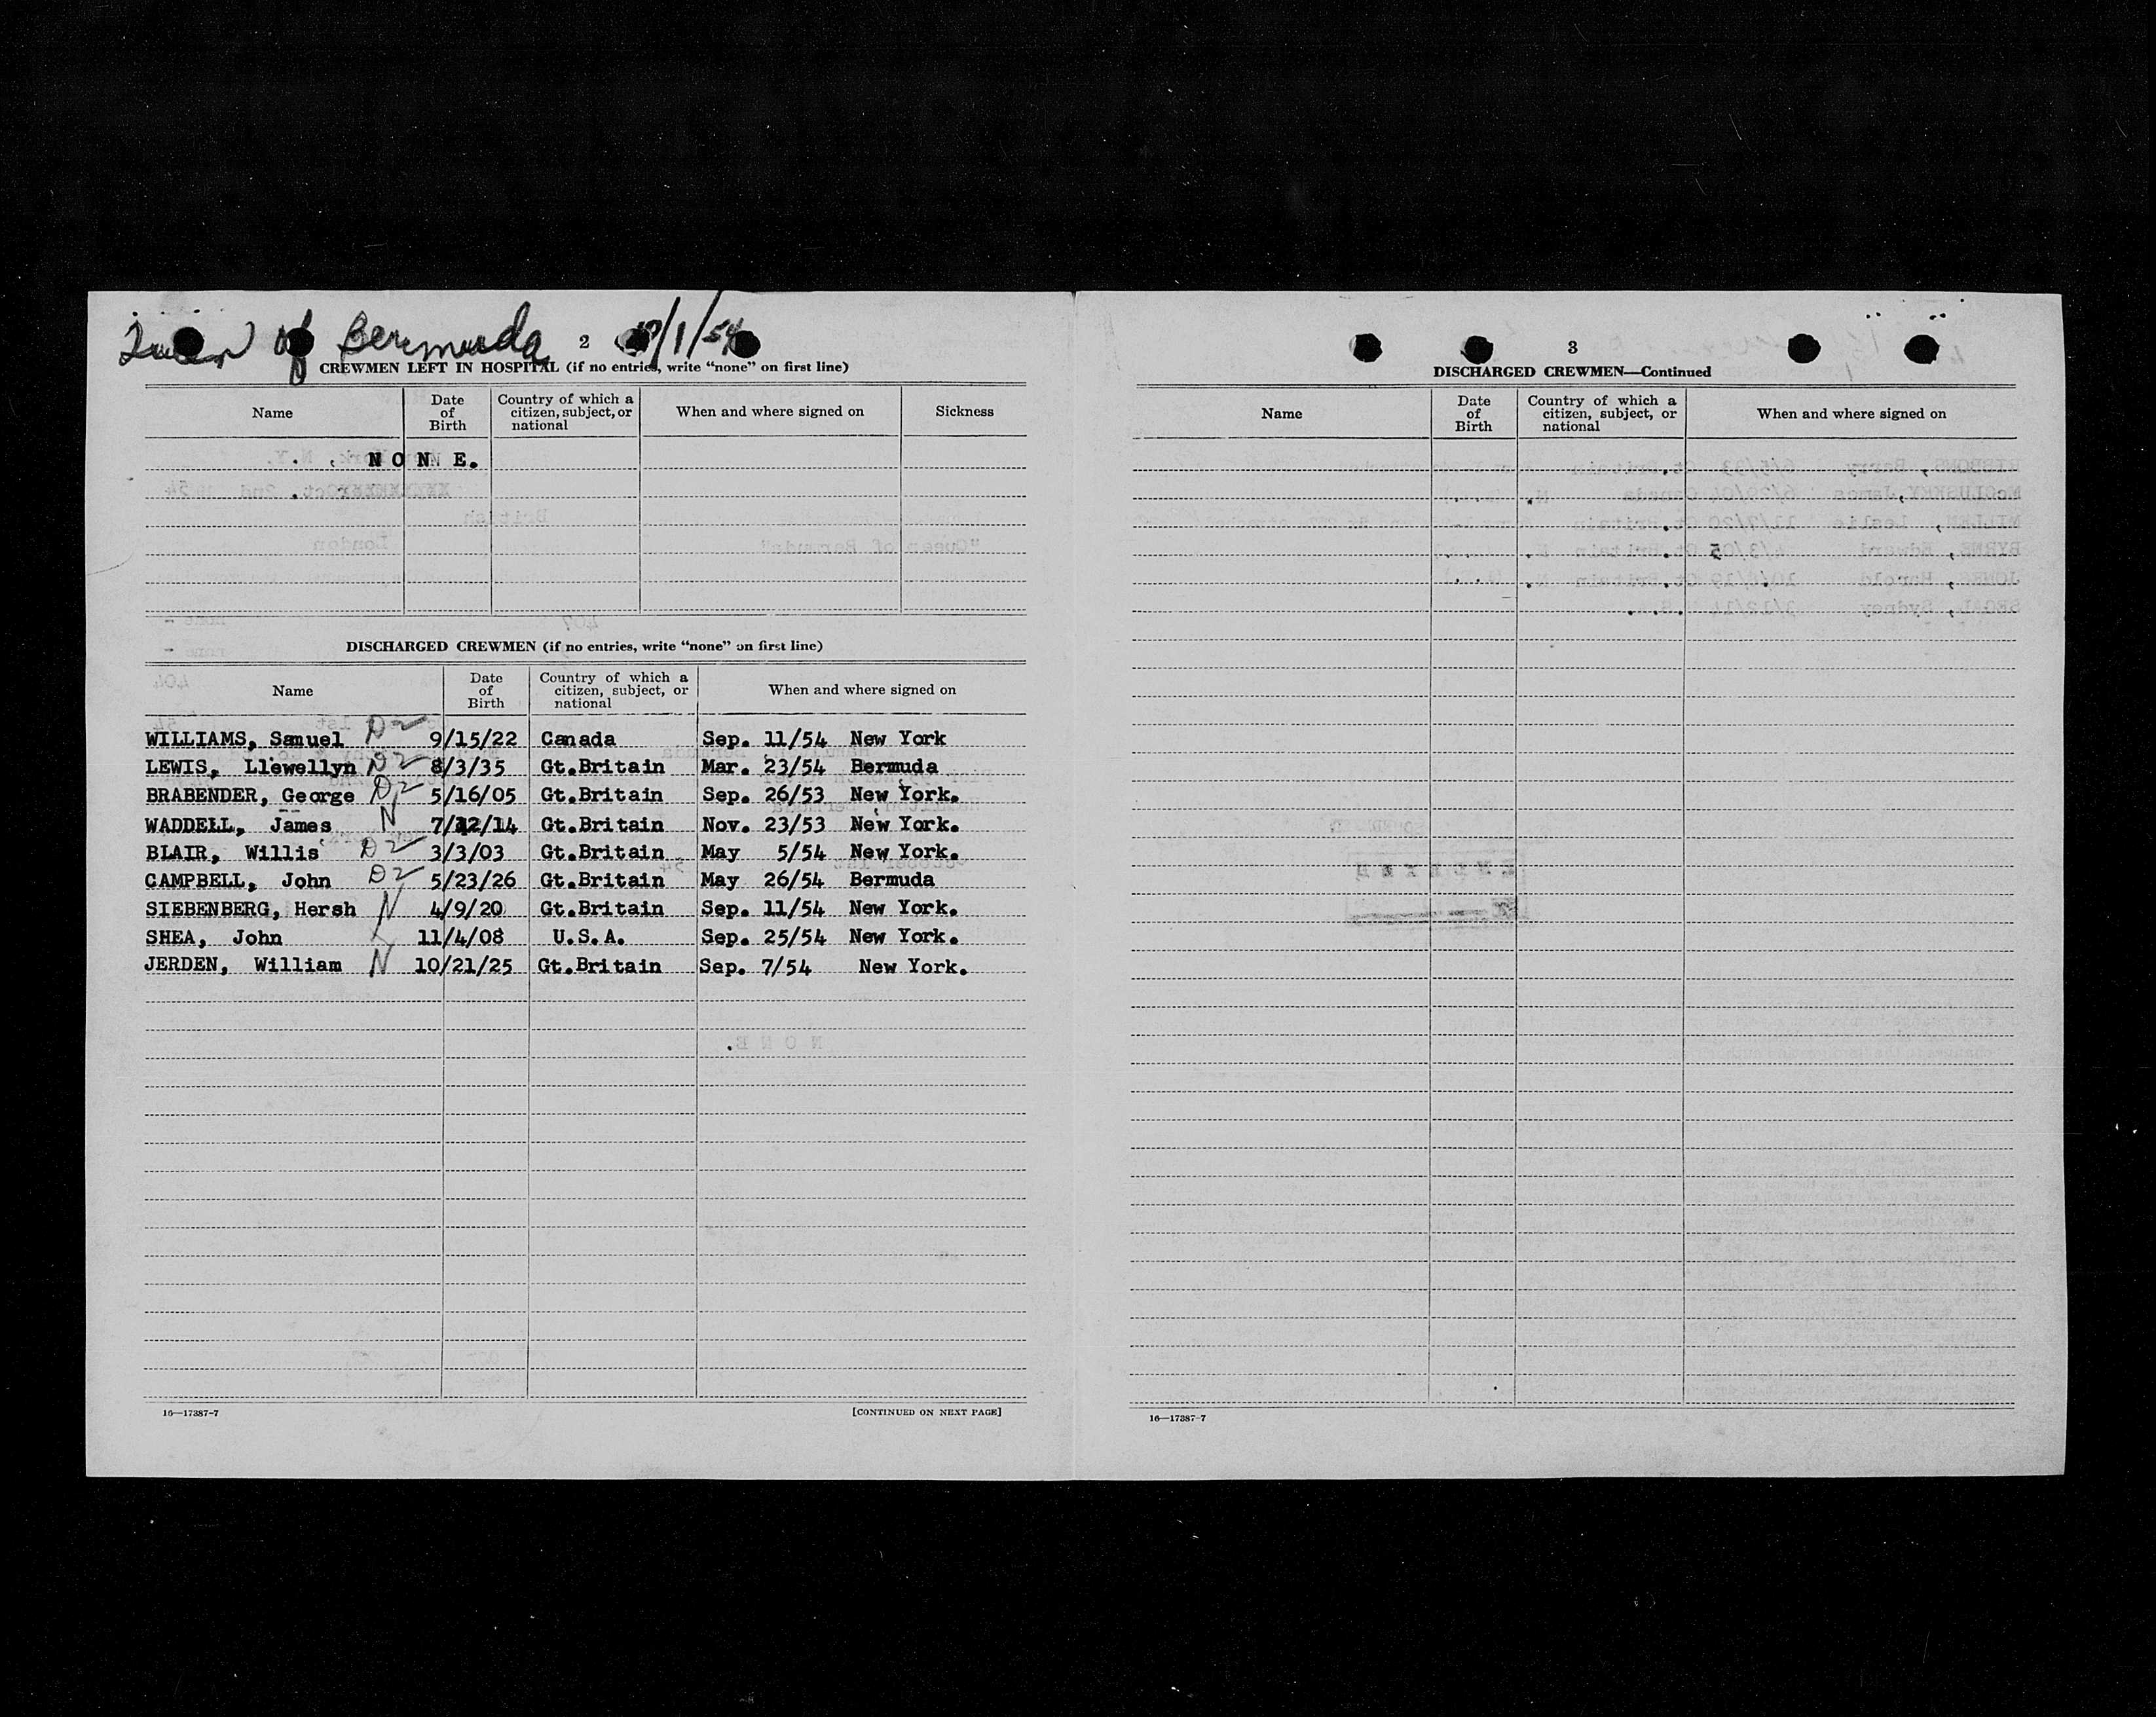 Queen of Bermuda 2 10/1/54
CREWMEN LEFT IN HOSPITAL (if no entries, write “none” on first line)
Name Date of Birth Country of which a citizen, subject, or national When and where signed on Sickness
N O N E.
DISCHARGED CREWMEN (if no entries, write “none” on first line)
Name Date of Birth Country of which a citizen, subject, or national When and where signed on
WILLIAMS, Samuel D2 9/15/22 Canada Sep. 11/54 New York
LEWIS, Llewellyn D2 8/3/35 Gt.Britain Mar. 23/54 Bermuda
BRABENDER, George D2 5/16/05 Gt.Britain Sep. 26/53 New York.
WADDELL, James N 7/12/14 Gt.Britain Nov. 23/53 New York.
BLAIR, Willis D2 3/3/03 Gt.Britain May 5/54 New York.
CAMPBELL, John D2 5/23/26 Gt.Britain May 26/54 Bermuda
SIEBENBERG, Hersh N 4/9/20 Gt.Britain Sep. 11/54 New York.
SHEA, John 11/4/08 U.S.A. Sep. 25/54 New York.
JERDEN, William N 10/21/25 Gt.Britain Sep. 7/54 New York.
16—17387-7 [CONTINUED ON NEXT PAGE]
3
DISCHARGED CREWMEN—Continued
Name Date of Birth Country of which a citizen, subject, or national When and where signed on
16—17387-7